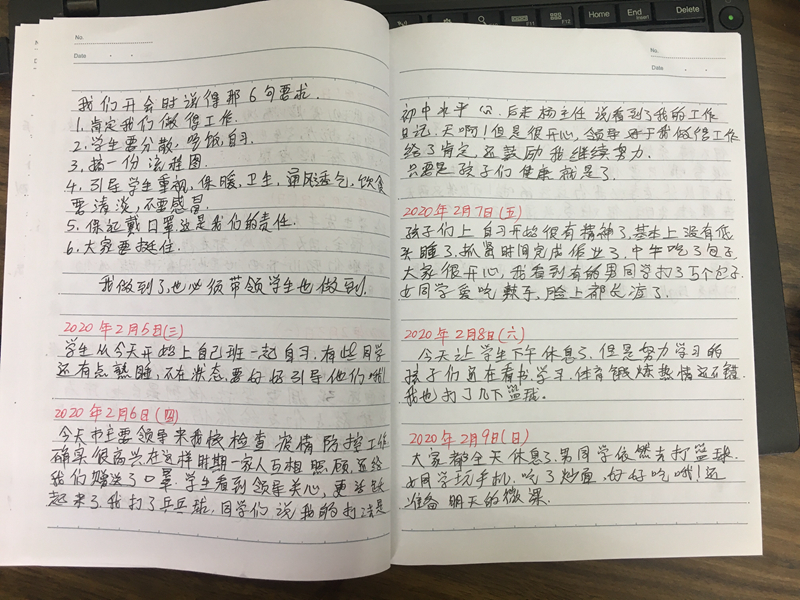 No.
Date
我们开会时说得那6句要求.
1.肯定我们做得工作.
2.学生要分散,吃饭,自习.
3.搞一份流程图.
4.引导学生重视,保暖,卫生,通风透气,饮食
要清淡,不要感冒.
5.保证戴口罩这是我们的责任.
6.大家要挺住.
我做到了,也必须带领学生也做到.
2020年2月5日(三)
学生从今天开始上自己班一起自习,有些同学
还有点熟睡,不在状态,要好好引导他们哦!
2020年2月6日(四)
今天市主要领导来我校检查疫情防控工作
确实很高兴在这样时期一家人互相照顾,还给
我们赠送了口罩.学生看到领导关心,更活跃
起来了.我打了乒乓球,同学们说我的打法是
No.
Date
初中水平 .后来杨主任说看到了我的工作
日记,天啊!但是很开心,领导对于我做得工作
给了肯定,还鼓励我继续努力.
只要是孩子们健康就是了.
2020年2月7日(五)
孩子们上自习开始很有精神了,基本上没有低
头睡了,抓紧时间完成作业了,中午吃了包子,
大家很开心,我看到有的男同学打了5个包子.
女同学爱吃辣子,脸上都长痘了.
2020年2月8日(六)
今天让学生下午休息了.但是努力学习的
孩子们还在看书,学习,体育锻炼热情还不错.
我也打了几下篮球.
2020年2月9日(日)
大家都全天休息了.男同学依然去打篮球.
女同学玩手机,吃了炒面,好好吃哦!还
准备明天的微课.
F11
F12
Home
End
Insert
Delete